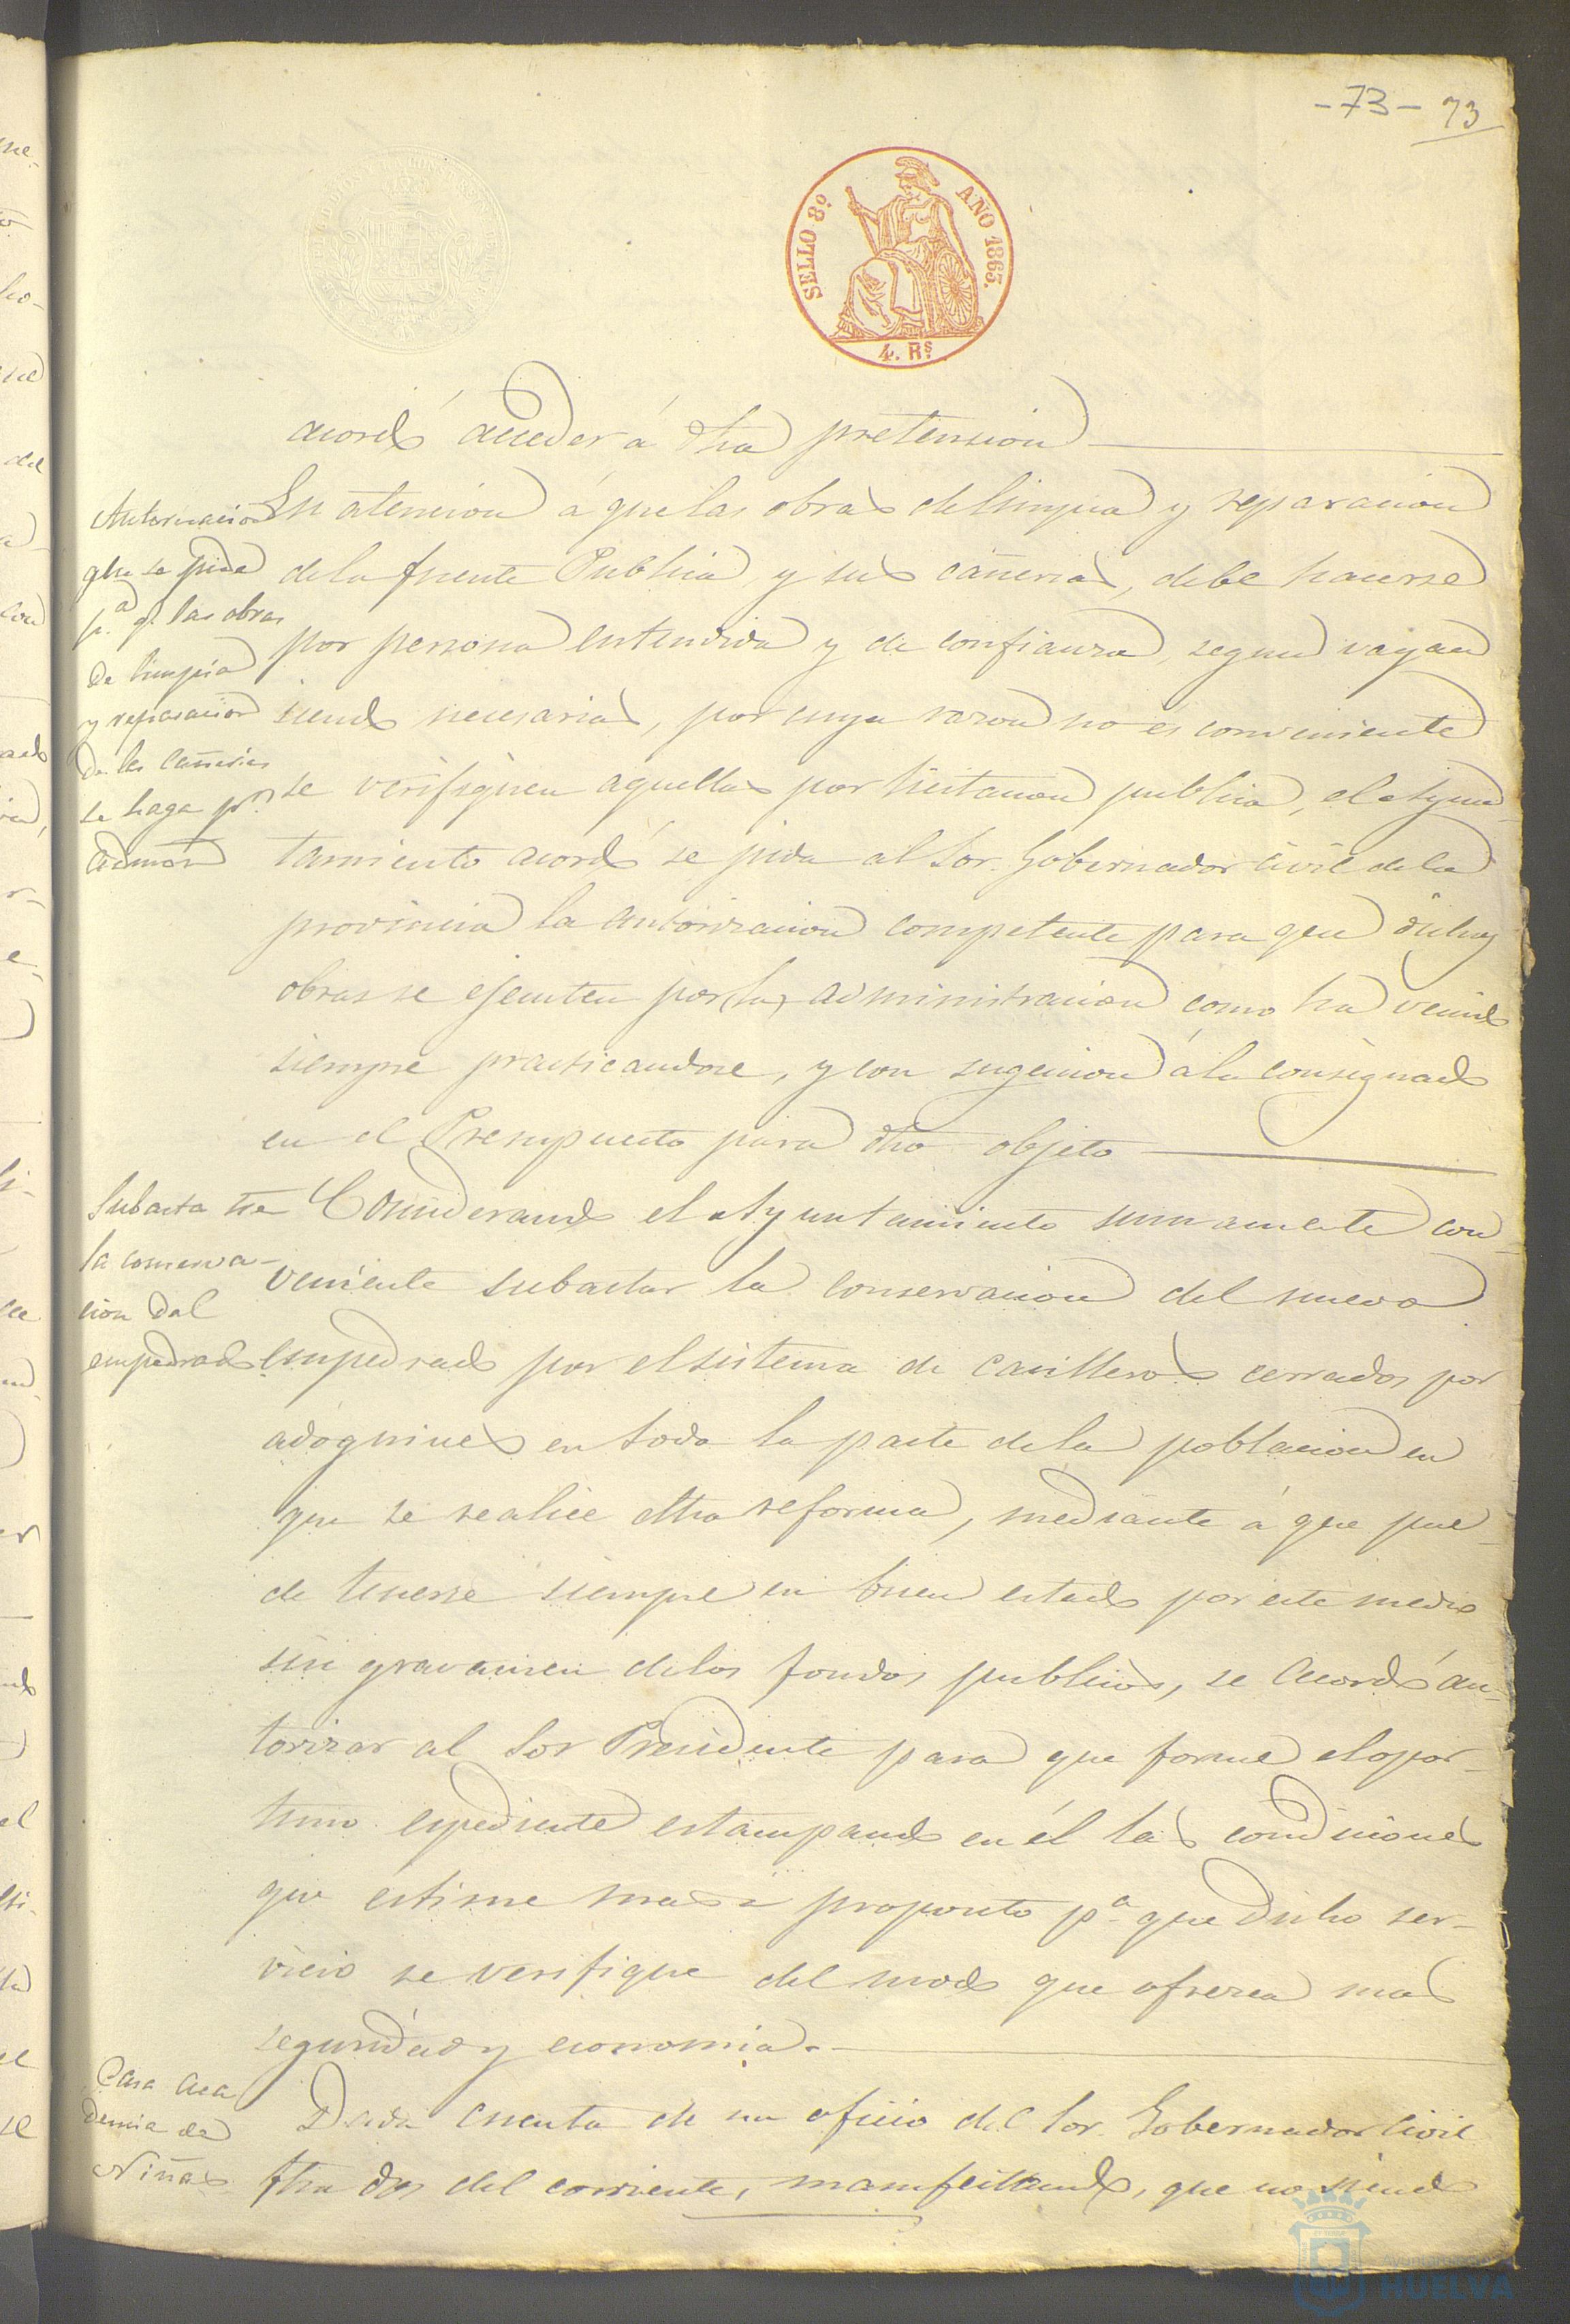 -73- 73
SELLO 8º AÑO 1865.
4. Rs
acordó acceder á dha pretension
Autorizacion
que se pide
pª q. las obras
de limpia
y reparacion
de las cañerias
se haga pr.
admon
En atencion á que las obras de limpia y reparacion
de la fuente Publica y sus cañerias, debe hacerse
por persona entendida y de confianza, segun vayan
siendo necesarias, por cuya razon no es conveniente
se verifiquen aquellas por licitacion publica, el Ayun-
tamiento acordó se pida al Sor. Gobernador Civil de la
provincia la autorizacion competente para que dichas
obras se ejecuten por la administracion como ha venido
siempre practicandose, y con sugecion á lo consignado
en el Presupuesto para dho objeto
Subasta de
la conserva-
cion del
empedrado
Considerando el Ayuntamiento sumamente con-
veniente subastar la conservacion del nuevo
empedrado por el sistema de casilleros cerrados por
adoquines en toda la parte de la poblacion en
que se realice dha reforma, mediante á que pue-
de tenerse siempre en buen estado por este medio
sin gravamen de los fondos publicos, se acordó au-
torizar al Sor Presidente para que forme el opor-
tuno espediente estampando en él las condiciones
que estime mas a proposito pª que dicho ser-
vicio se verifique del modo que ofrezca mas
seguridad y economia.
Casa Aca
demia de
Niñas
Dada cuenta de un oficio del Sor. Gobernador Civil
fha dos del corriente, manifestando, que no siendo
Ayuntamiento
HUELVA